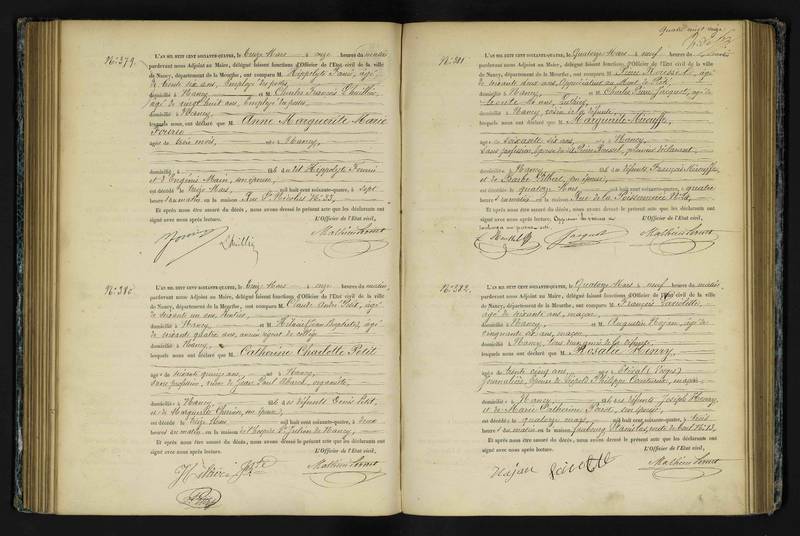 N° 379.
L'AN MIL HUIT CENT SOIXANTE-QUATRE, le treize Mars à onze heures du matin
pardevant nous Adjoint au Maire, délégué faisant fonctions d'Officier de l'Etat civil de la ville
de Nancy, département de la Meurthe, ont comparu M. Hippolyte âgé
de trente six ans, Employé des postes
domicilié à Nancy, et M. Charles François Lhuillier
âgé de vingt huit ans, Employé des postes,
domicilié à Nancy,
lesquels nous ont déclaré que M. Anne Marguerite Marie
âgée de trois mois, née à Nancy,
domicilié à fille dudit Hippolyte
et d'Eugénie son épouse,
est décédée le treize Mars, mil huit cent soixante-quatre, à sept
heures du matin en la maison Rue St Nicolas N° 33,
Et après nous être assuré du décès, nous avons dressé le présent acte que les déclarants ont
signé avec nous après lecture. L'Officier de l'Etat civil,
Lhuillier
N° 380.
L'AN MIL HUIT CENT SOIXANTE-QUATRE, le treize Mars à onze heures du matin,
pardevant nous Adjoint au Maire, délégué faisant fonctions d'Officier de l'Etat civil de la ville
de Nancy, département de la Meurthe, ont comparu M. Claude André Petit, âgé
de soixante un ans, Rentier,
domicilié à Nancy, et M. Hilaire (Jean Baptiste), âgé
de soixante quatre ans, ancien
domicilié à Nancy,
lesquels nous ont déclaré que M. Catherine Charlotte Petit
âgée de soixante quinze ans, née à Nancy,
sans profession, veuve de Jean Paul organiste,
domiciliée à Nancy, fille des défunts Denis Petit,
et de Marguerite son épouse,
est décédée le treize Mars mil huit cent soixante-quatre, à deux
heures du matin en la maison de l'hospice St Julien de Nancy,
Et après nous être assuré du décès, nous avons dressé le présent acte que les déclarants ont
signé avec nous après lecture. L'Officier de l'Etat civil,
Hilaire
N° 381
L'AN MIL HUIT CENT SOIXANTE-QUATRE, le quatorze Mars à neuf heures du matin
pardevant nous Adjoint au Maire, délégué faisant fonctions d'Officier de l'Etat civil de la ville
de Nancy, département de la Meurthe, ont comparu M. Pierre âgé
de soixante deux ans, Appréciateur au Mont de Piété,
domicilié à Nancy, et M. Charles Pierre Jacquot, âgé de
trente ans,
domicilié à Nancy, de la défunte,
lesquels nous ont déclaré que M. Marguerite
âgée de soixante six ans, née à Nancy,
sans profession, épouse de Pierre premier déclarant,
domiciliée à Nancy, fille des défunts François
et de Barbe son épouse,
est décédée le quatorze Mars mil huit cent soixante-quatre, à quatre
heures du matin en la maison Rue de la Poissonnerie
Et après nous être assuré du décès, nous avons dressé le présent acte que les déclarants ont
signé avec nous après lecture. L'Officier de l'Etat civil,
Jacquot
N° 382.
L'AN MIL HUIT CENT SOIXANTE-QUATRE, le quatorze Mars à neuf heures du matin,
pardevant nous Adjoint au Maire, délégué faisant fonctions d'Officier de l'Etat civil de la ville
de Nancy, département de la Meurthe, ont comparu M. François
âgé de soixante ans, maçon,
domicilié à Nancy, et M. Augustin Hajan, âgé de
cinquante six ans, maçon,
domicilié à Nancy, tous deux amis de la défunte,
lesquels nous ont déclaré que M. Rosalie Henry,
âgée de trente cinq ans, née à Etival (Vosges)
journalière, épouse de Léopold Philippe maçon
domiciliée à Nancy, fille des défunts Joseph Henry,
et de Marie Catherine son épouse,
est décédée le quatorze mars mil huit cent soixante-quatre, à trois
heures du matin en la maison faubourg Stanislas,
Et après nous être assuré du décès, nous avons dressé le présent acte que les déclarants ont
signé avec nous après lecture. L'Officier de l'Etat civil,
Hajan